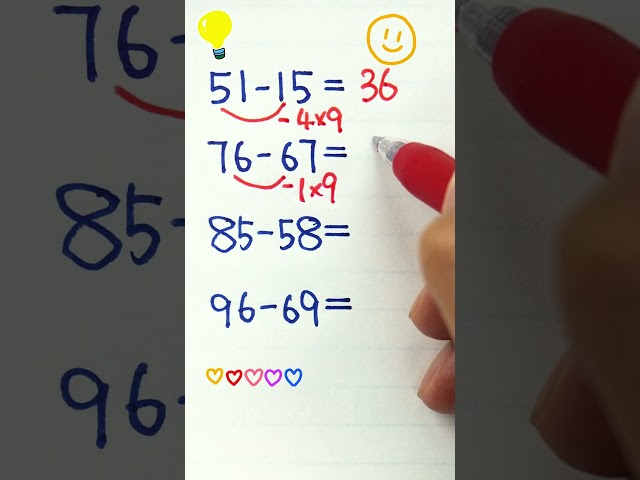 51-15= 36
-4×9
76-67=
-1×9
85-58=
96-69=